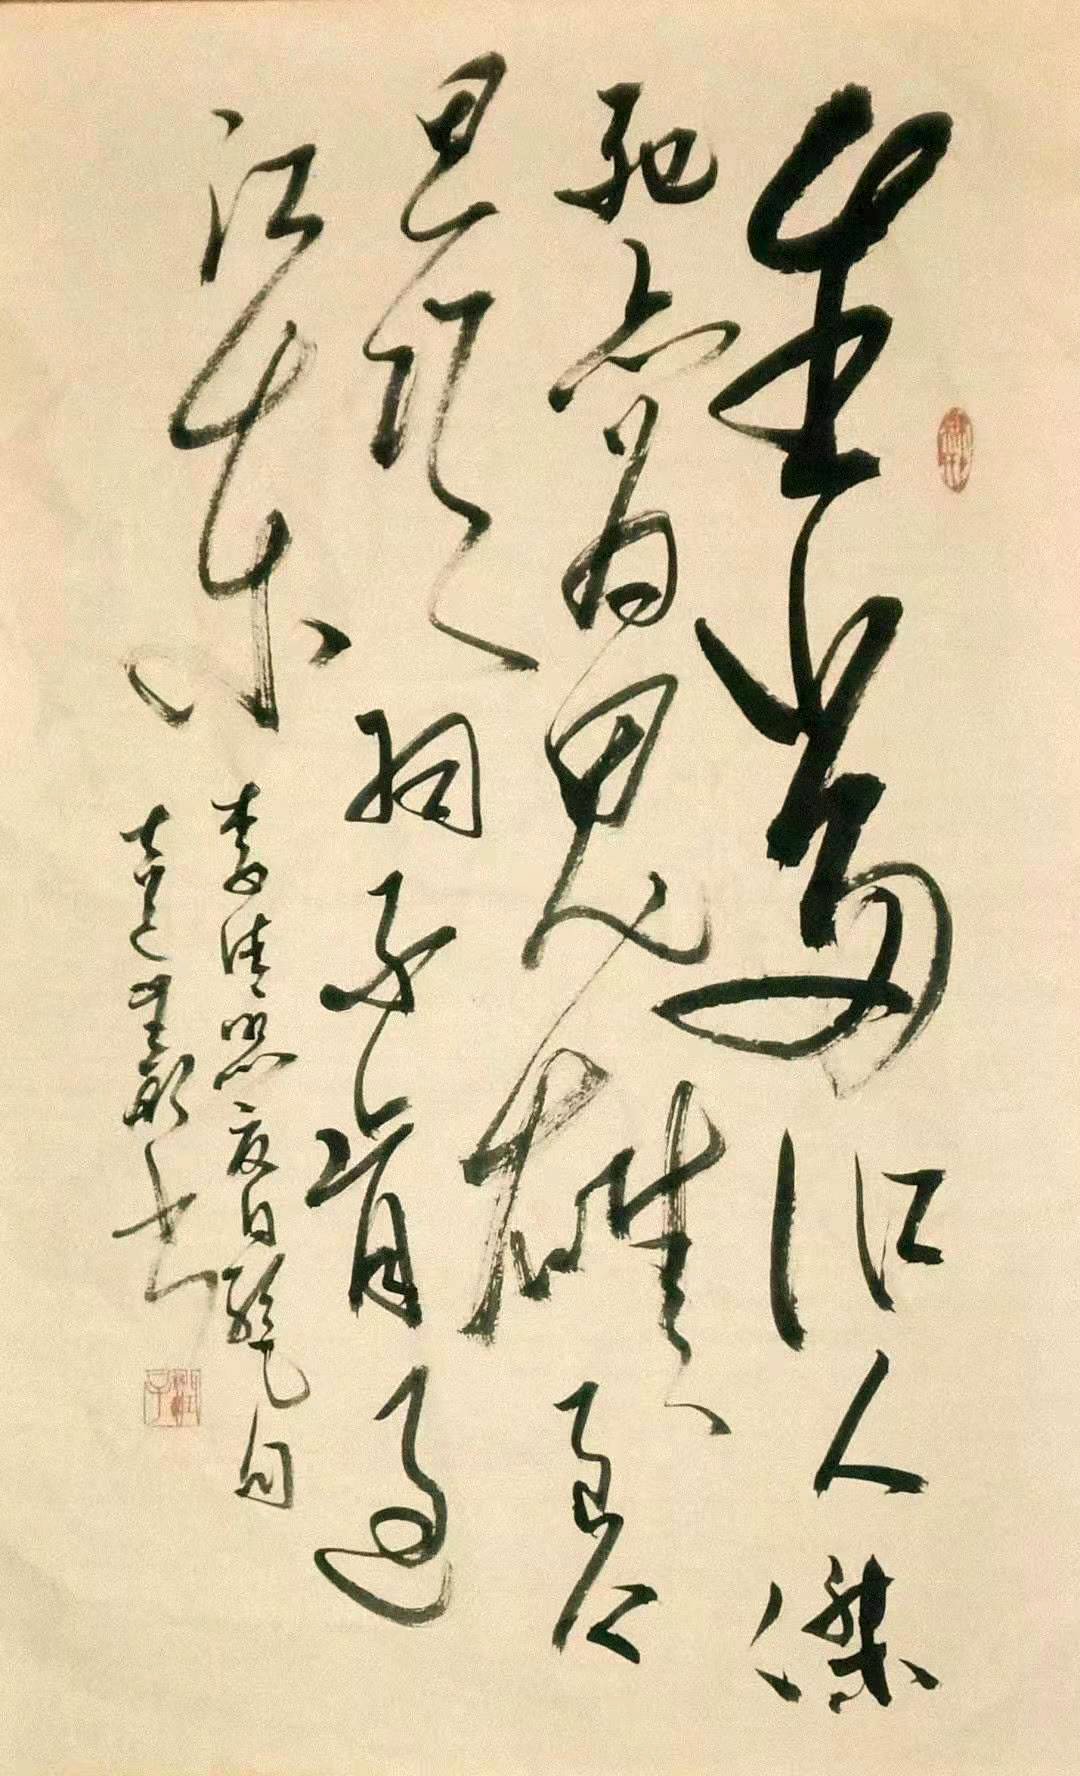 生當作人傑
死亦為鬼雄至今
思項羽不肯過
江東
李清照夏日絕句
書